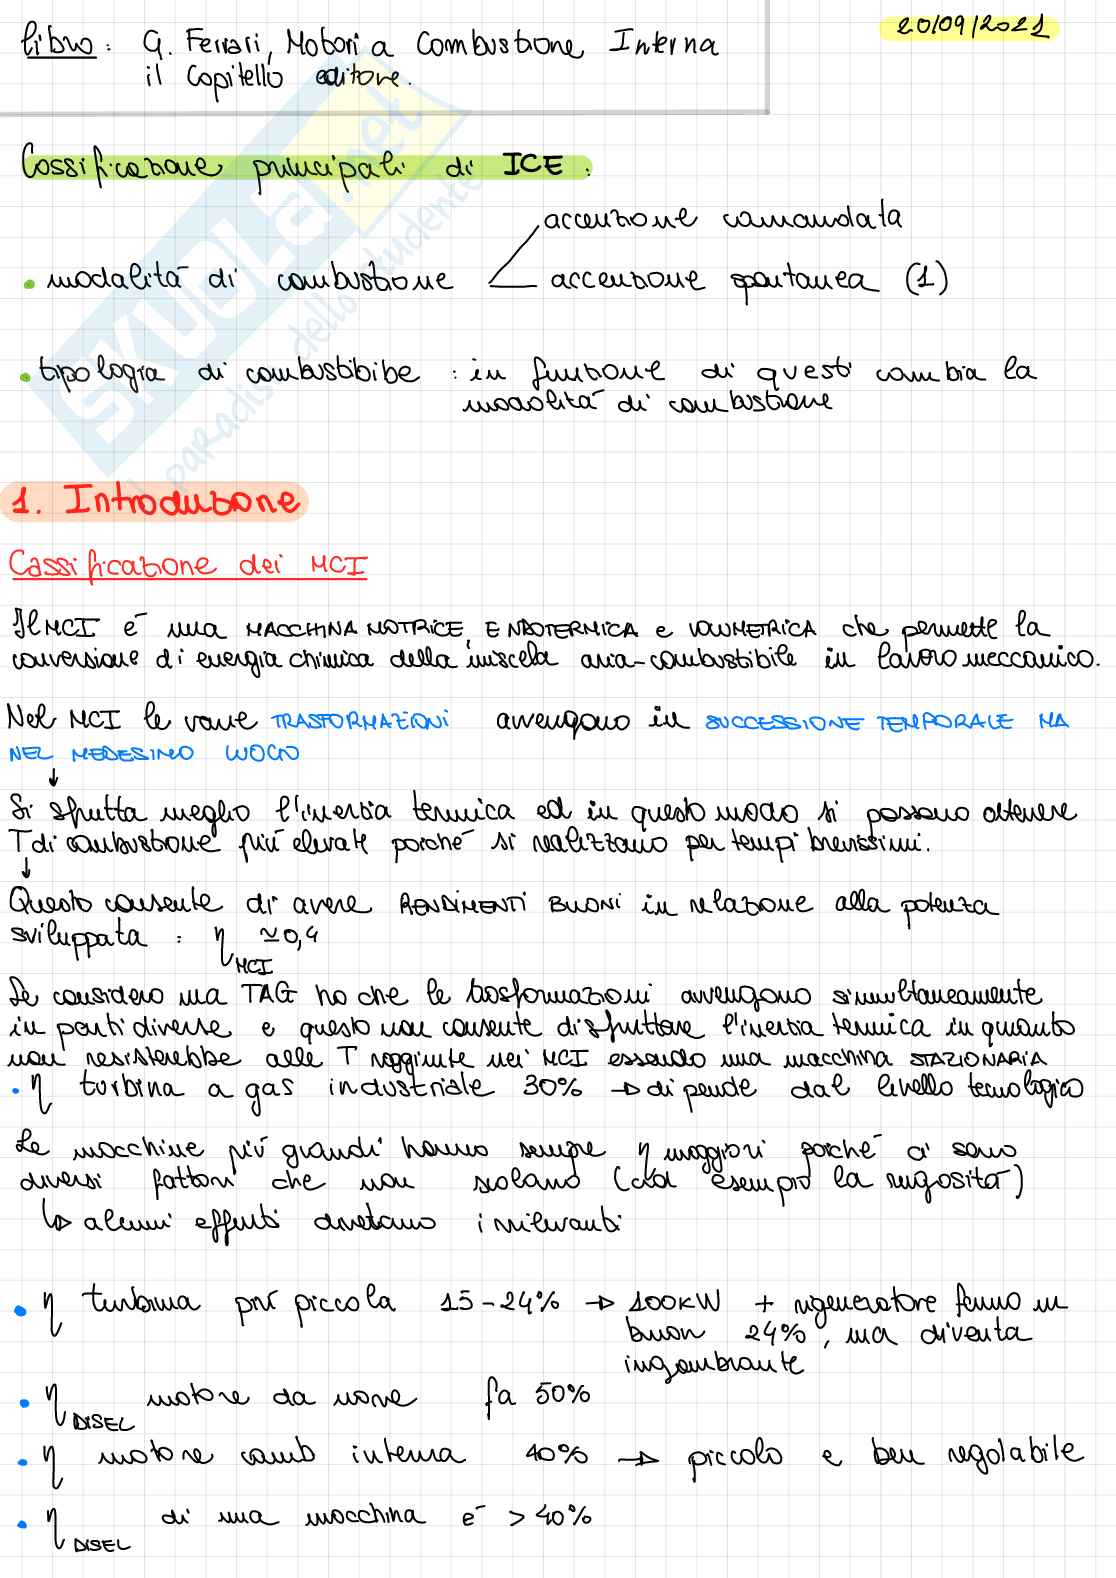 20/09/2021
libro: G. Ferrari, Motori a Combustione Interna
il Capitello editore.
Cossificazione principali di ICE:
accensione comandata
• modalità di combustione accensione spontanea (1)
• tipologia di combustibibe : in funzione di questi cambia la
modalità di combustione
1. Introduzione
Cassificazione dei MCI
Il MCI è una MACCHINA MOTRICE, ENDOTERMICA e VOLUMETRICA che permette la
conversione di energia chimica della miscela aria-combustibile in lavoro meccanico.
Nel MCI le varie TRASFORMAZIONI avvengono in SUCCESSIONE TEMPORALE MA
NEL MEDESIMO LUOGO
↓
Si sfrutta meglio l'inerzia termica ed in questo modo si possono ottenere
T di combustione più elevate poiché si realizzano per tempi brevissimi.
↓
Questo consente di avere RENDIMENTI BUONI in relazione alla potenza
sviluppata : η MCI ≃0,4
Se considero una TAG ho che le trasformazioni avvengono simultaneamente
in punti diverse e questo non consente di sfruttare l'inerzia termica in quanto
non resisterebbe alle T raggiunte nei MCI essendo una macchina STAZIONARIA
• η turbina a gas industriale 30% → dipende dal livello tecnologico
Le macchine più grandi hanno sempre η maggiori poiché ci sono
diversi fattori che non scalano (ad esempio la rugosità)
↳ alcuni effetti diventano irrilevanti
• η turbina più piccola 15-24% → 100KW + rigeneratore fanno un
buon 24%, ma diventa
ingombrante
• η DISEL motore da nave fa 50%
• η motore comb interna 40% → piccolo e ben regolabile
• η DISEL di una macchina è > 40%
SKUOLA.net
il paradiso dello studente